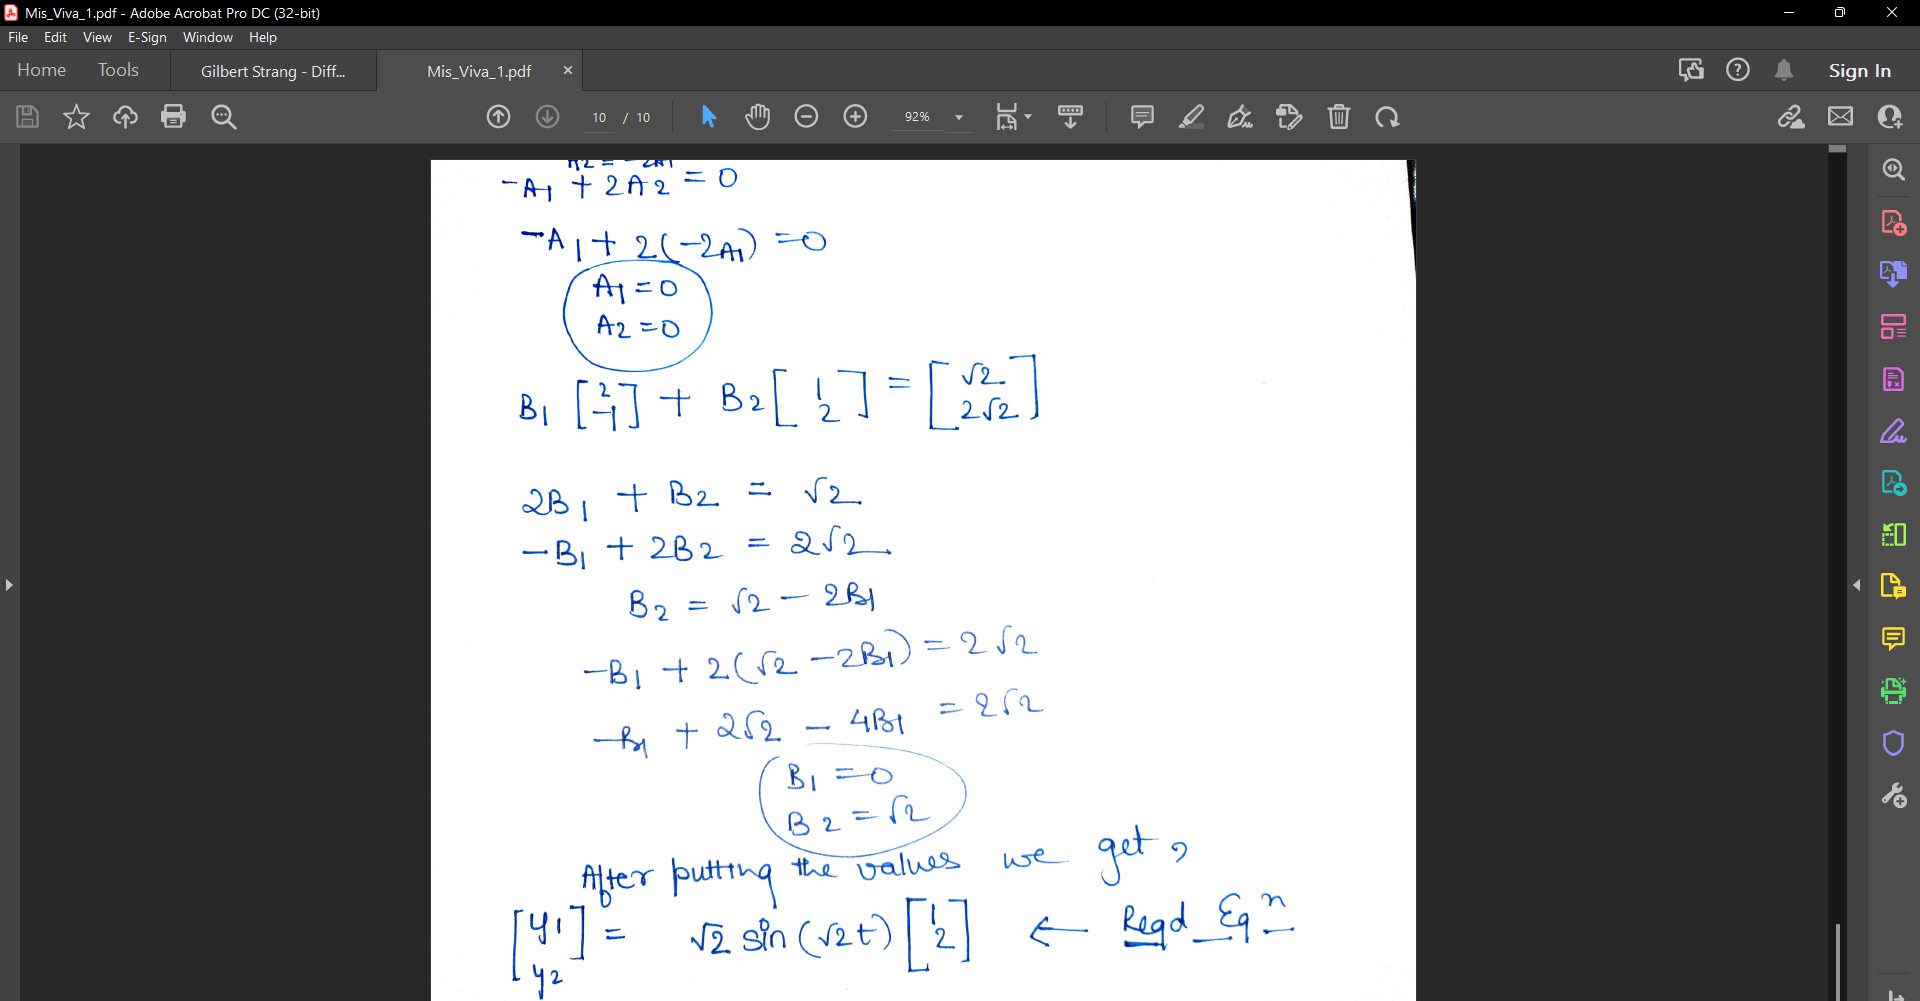 Mis_Viva_1.pdf - Adobe Acrobat Pro DC (32-bit)
File Edit View E-Sign Window Help
Home Tools Gilbert Strang - Diff... Mis_Viva_1.pdf × Sign In
10 / 10 92%
A2 = -2A1
-A1 + 2A2 = 0
-A1 + 2(-2A1) = 0
A1 = 0
A2 = 0
B1 [2 -1] + B2 [1 2] = [√2 2√2]
2B1 + B2 = √2
-B1 + 2B2 = 2√2
B2 = √2 - 2B1
-B1 + 2(√2 - 2B1) = 2√2
-B1 + 2√2 - 4B1 = 2√2
B1 = 0
B2 = √2
After putting the values we get,
[y1 y2] = √2 sin(√2t) [1 2] ← Reqd Eqn